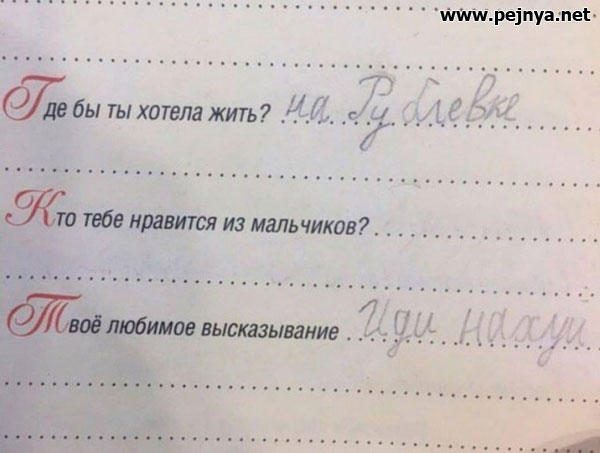 www.pejnya.net
Где бы ты хотела жить? на Рублевке
Кто тебе нравится из мальчиков?
Твоё любимое высказывание Иди нахуй